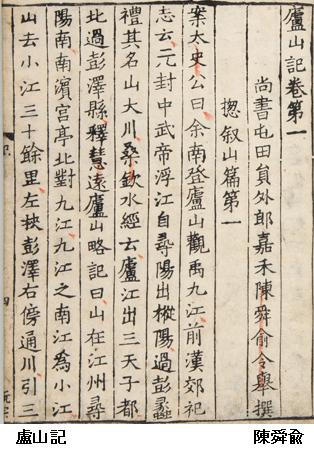 廬山記卷第一
尚書屯田員外郎嘉禾陳舜俞令舉撰
惣叙山篇第一
案太史公曰余南登廬山觀禹九江前漢郊祀
志云元封中武帝浮江自尋陽出樅陽過彭蠡
禮其名山大川桑欽水經云廬江出三天子都
北過彭澤縣釋慧遠廬山略記曰山在江州尋
陽南南濱宮亭北對九江九江之南江為小江
山去小江三十餘里左挾彭澤右傍通川引三
盧山記
陳舜兪